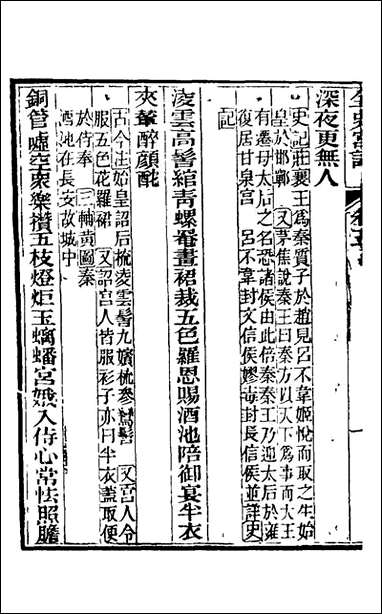 全史宮詞
深夜更無人
史記莊襄王爲秦質子於趙見呂不韋姬悅而取之生始
皇於邯鄲 又茅焦說秦王曰秦方以天下爲事而大王
有遷母太后之名恐諸侯由此倍秦秦王乃迎太后於雍
復居甘泉宮 呂不韋封文信侯嫪毐封長信侯並詳史
記
淩雲高髻綰靑螺菴畫裙裁五色羅恩賜酒池陪御宴半衣
夾輦醉顏酡
古今注始皇詔后梳淩雲髻九嬪梳參鸞髻 又宮人令
服五色花羅裙 又詔宮人皆服衫子亦曰半衣蓋取便
於侍奉 三輔黃圖秦
酒池在長安故城中
銅管嘘空衆樂攢五枝燈炬玉螭蟠宮娥入侍心常怯照膽